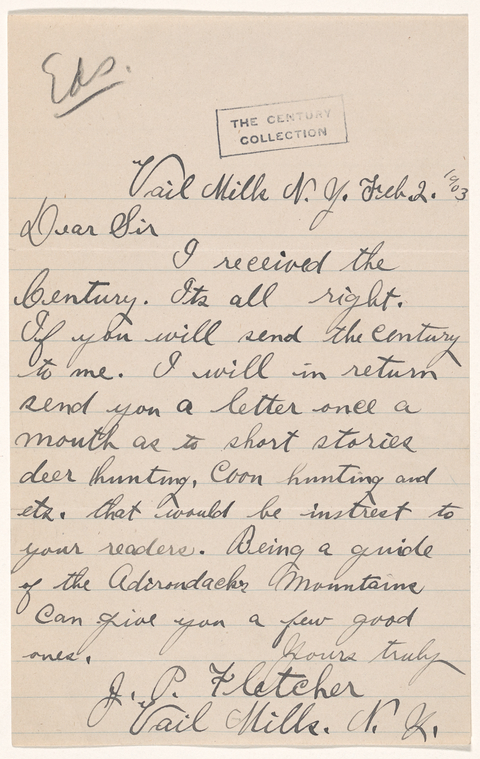 Eds.
THE CENTURY
COLLECTION
Vail Mills N. Y. Feb. 2. 1903
Dear Sir
I received the
Century. Its all right.
If you will send the century
to me. I will in return
send you a letter once a
mouth as to short stories
deer hunting, Coon hunting and
etz. that would be instrest to
your readers. Being a guide
of the Adirondacks Mountains
Can give you a few good
ones. Yours truly
J. P. Fletcher
Vail Mills. N. Y.